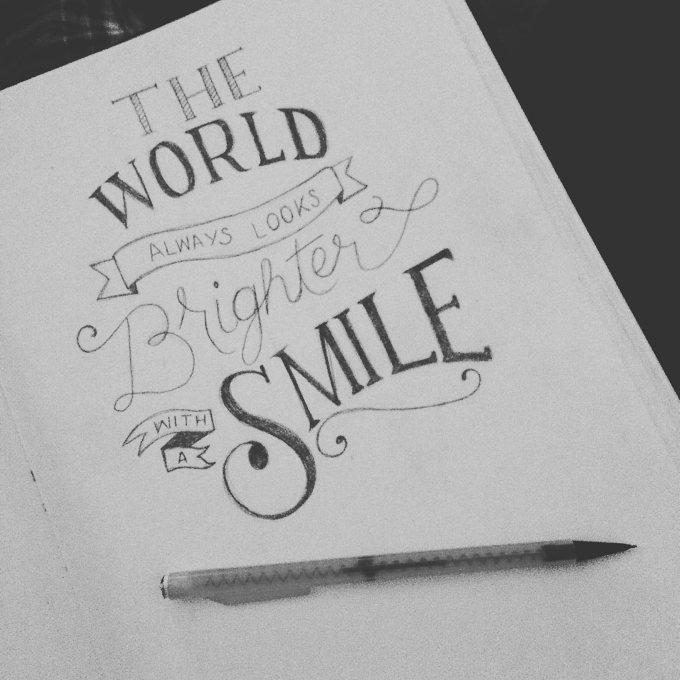 THE
WORLD
ALWAYS LOOKS
Brighter
WITH
A
SMILE